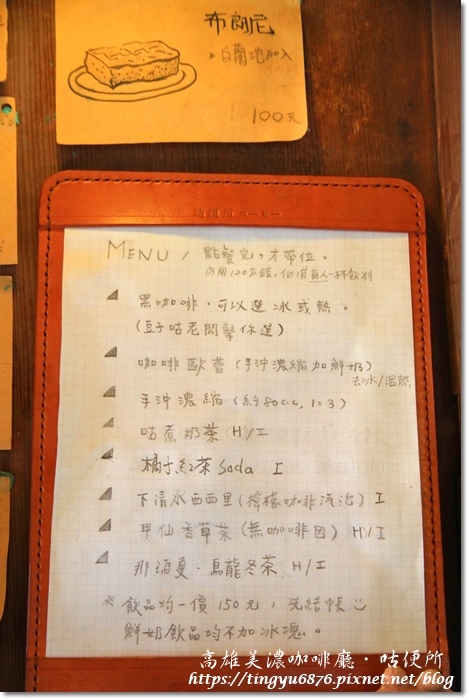 布朗尼
白蘭地加入
100元
MENU / 點餐完,才帶位。
內用120分鐘,低消每人一杯飲料
黑咖啡,可以選冰或熱。
(豆子咕老闆幫你選)
咖啡歐蕾(手沖濃縮加鮮奶)
去冰/溫熱
手沖濃縮(約80c.c, 1:3)
咕煮奶茶 H/I
橘子紅茶Soda I
下清水西西里(檸檬咖啡汽泡) I
甲仙香草茶(無咖啡因) H/I
那瑪夏·烏龍冬茶 H/I
※飲品均一價150元,先結帳
鮮奶飲品均不加冰塊。
高雄美濃咖啡廳·咕便所
https://tingyu6876.pixnet.net/blog